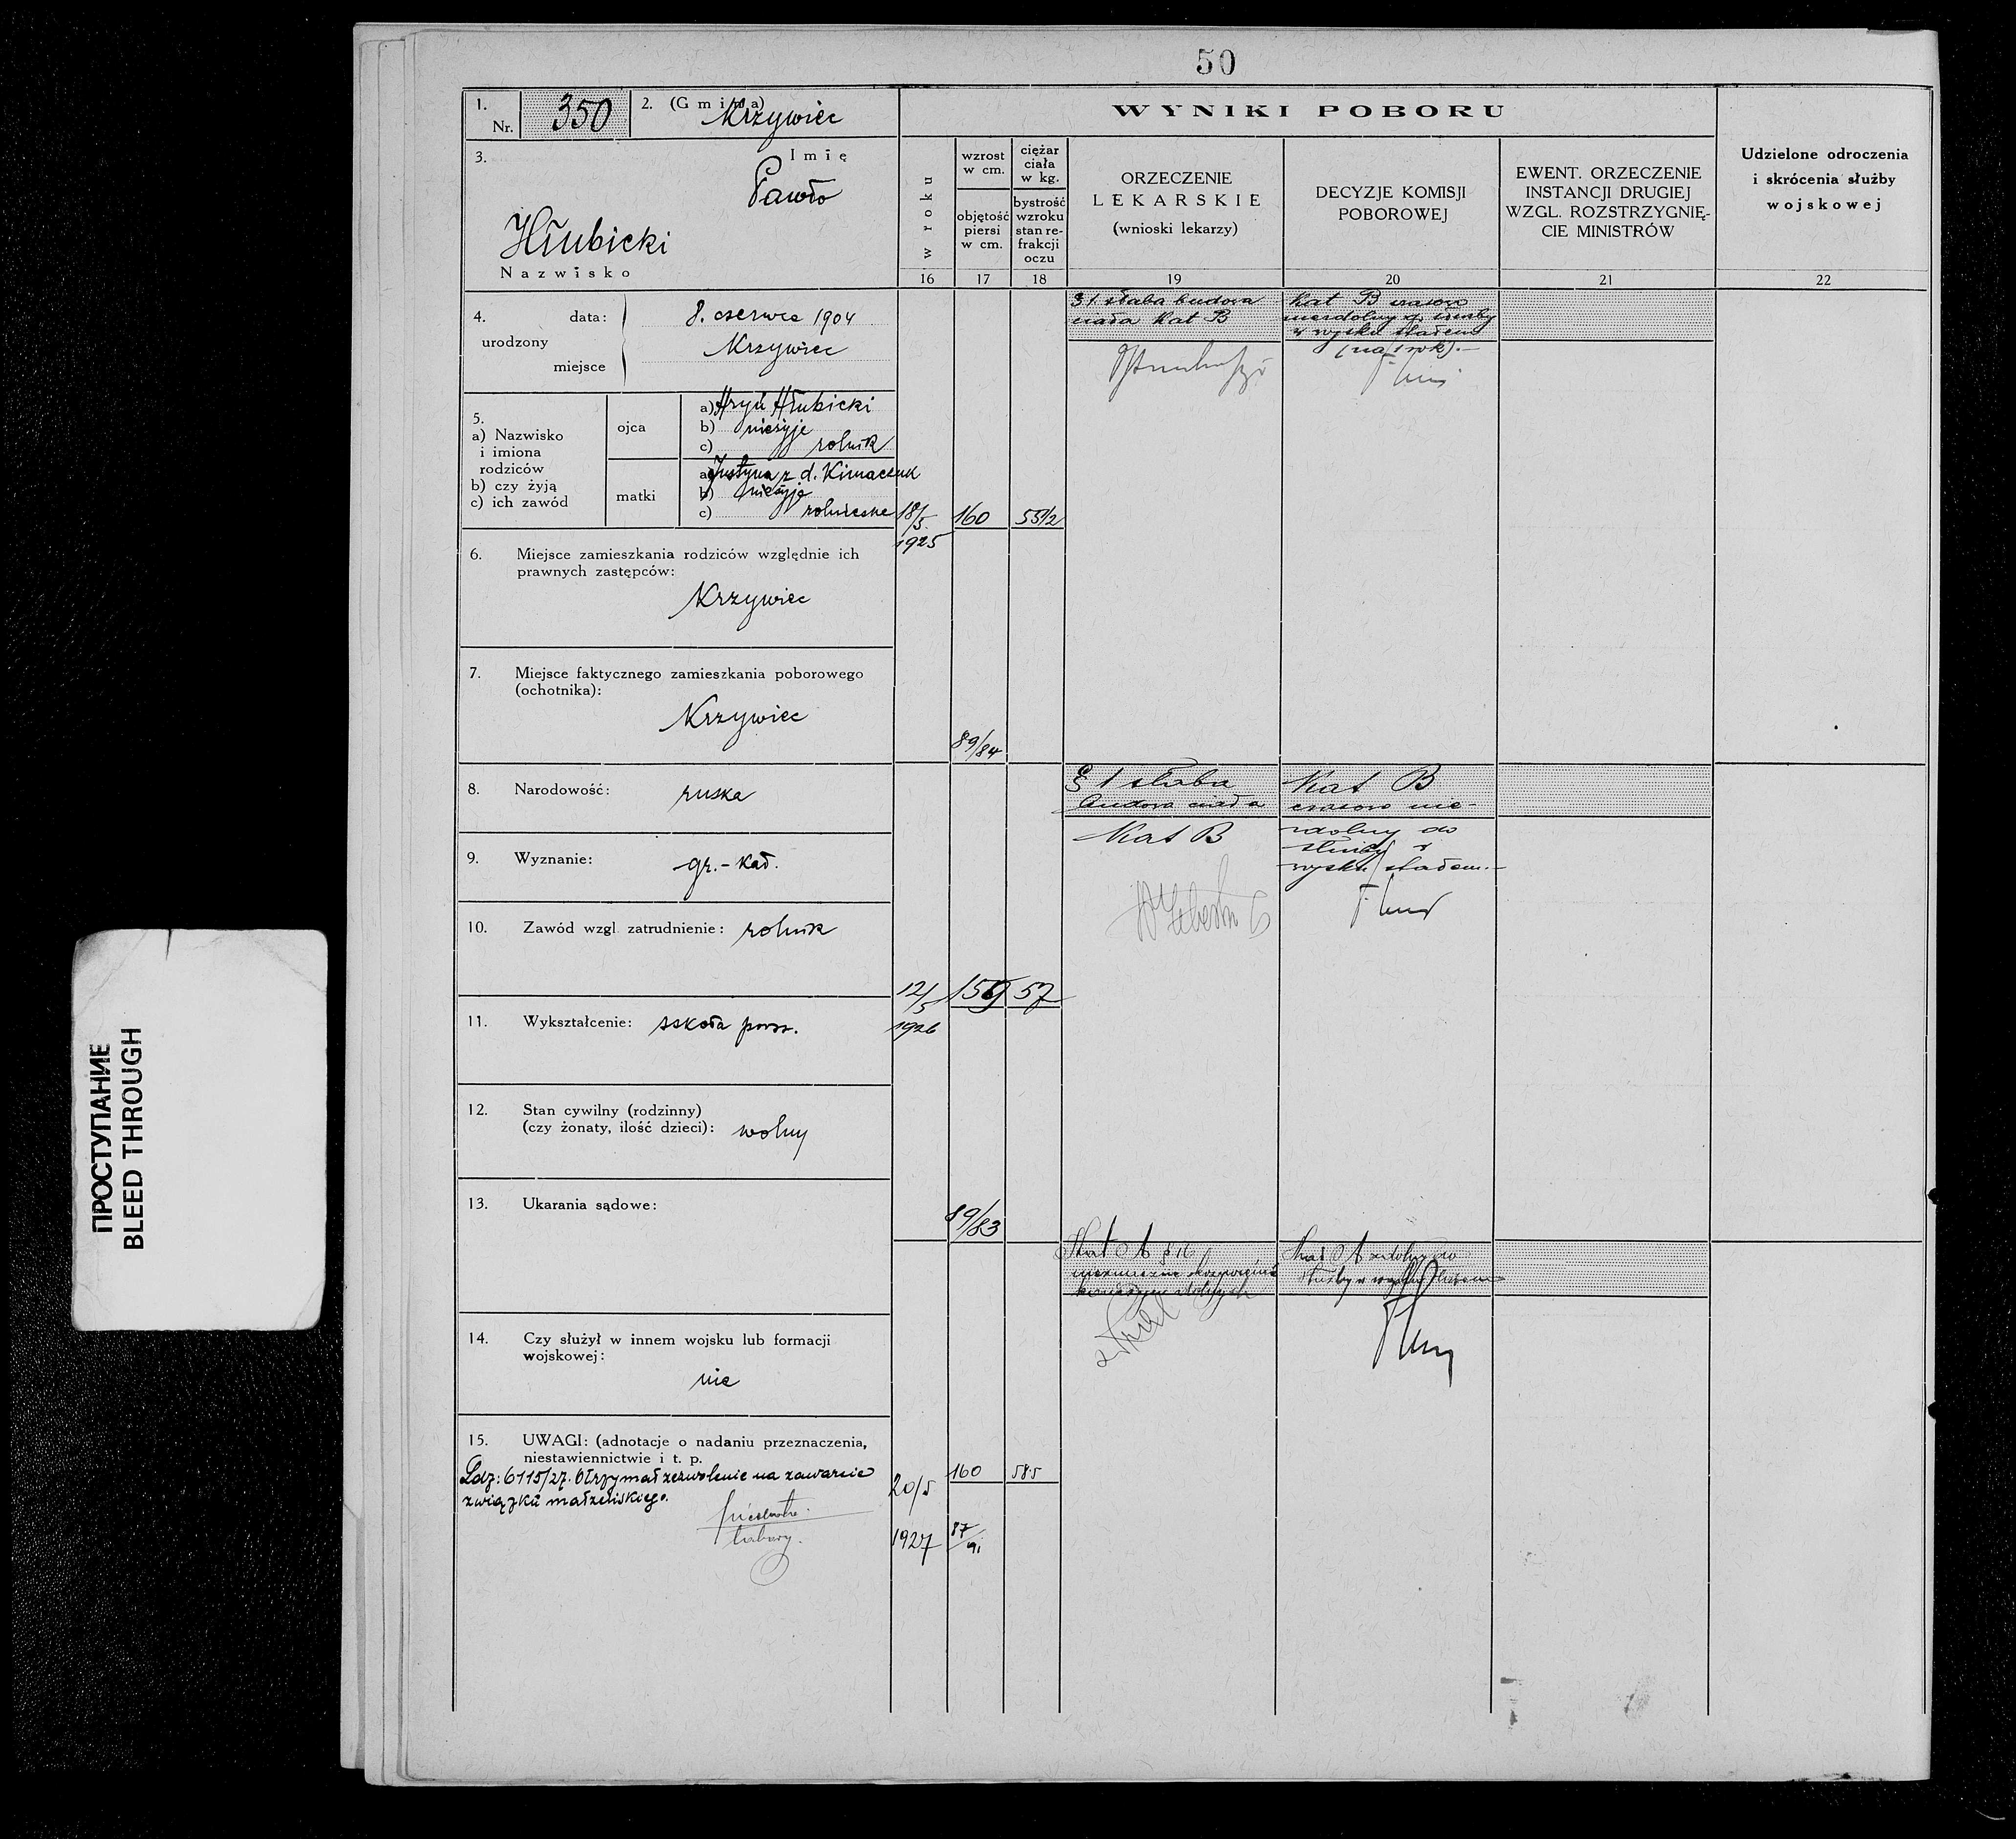 50
1. Nr. 350
2. (Gmina) Krzywiec
3. Imię
Pawło
Hłubicki
Nazwisko
4. urodzony
data: 8. czerwca 1904
miejsce Krzywiec
5.
a) Nazwisko
i imiona
rodziców
b) czy żyją
c) ich zawód
ojca
a) Hryń Hłubicki
b) nieżyje
c) rolnik
matki
a) Justyna z d. Kimaczuk
b) nieżyje
c) rolniczka
6. Miejsce zamieszkania rodziców względnie ich
prawnych zastępców:
Krzywiec
7. Miejsce faktycznego zamieszkania poborowego
(ochotnika):
Krzywiec
8. Narodowość: ruska
9. Wyznanie: gr.-kat.
10. Zawód wzgl zatrudnienie: rolnik
11. Wykształcenie: szkoła powsz.
12. Stan cywilny (rodzinny)
(czy żonaty, ilość dzieci): wolny
13. Ukarania sądowe:
14. Czy służył w innem wojsku lub formacji
wojskowej:
nie
15. UWAGI: (adnotacje o nadaniu przeznaczenia,
niestawiennictwie i t. p.
Ldz: 6115/27. Otrzymał zezwolenie na zawarcie
związku małżeńskiego.
tabory.
WYNIKI POBORU
w roku
16
wzrost
w cm.
objętość
piersi
w cm.
17
ciężar
ciała
w kg.
bystrość
wzroku
stan re-
frakcji
oczu
18
ORZECZENIE
LEKARSKIE
(wnioski lekarzy)
19
DECYZJE KOMISJI
POBOROWEJ
20
EWENT. ORZECZENIE
INSTANCJI DRUGIEJ
WZGL. ROZSTRZYGNIĘ-
CIE MINISTRÓW
21
Udzielone odroczenia
i skrócenia służby
wojskowej
22
18/5 1925
160
55 1/2
89/84
§ 1 słaba budowa
ciała Kat B
Kat B czasowo
niezdolny do służby
w wojsku stałem
(na 1 rok).-
12/5 1926
159
57
89/83
§ 1 słaba
budowa ciała
Kat B
Kat B
czasowo nie-
zdolny do
służby w
wojsku stałem.-
20/5
1927
160
585
87/91
Kat A § 16
Kat A zdolny do
służby w wojsku
ПРОСТУПАНИЕ
BLEED THROUGH